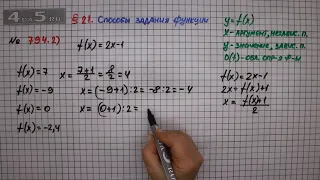 4К
5
§ 21. Способы задания функции
№ 794. 2)
f(x) = 2x-1
y = f(x)
x - аргумент, независ. п.
y - значение, завис. п.
f(x) = 7
x = 7+1/2 = 8/2 = 4
f(x) = -9
x = (-9+1):2 = -8:2 = -4
f(x) = 0
x = (0+1):2 =
f(x) = -2,4
f(x) = 2x-1
2x = f(x)+1
x = f(x)+1/2